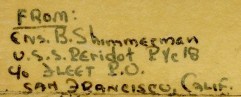 FROM:
Ens. B. Shimmerman
U.S.S. Peridot PYc 18
c/o FLEET P.O.
SAN FRANCISCO, CALIF.